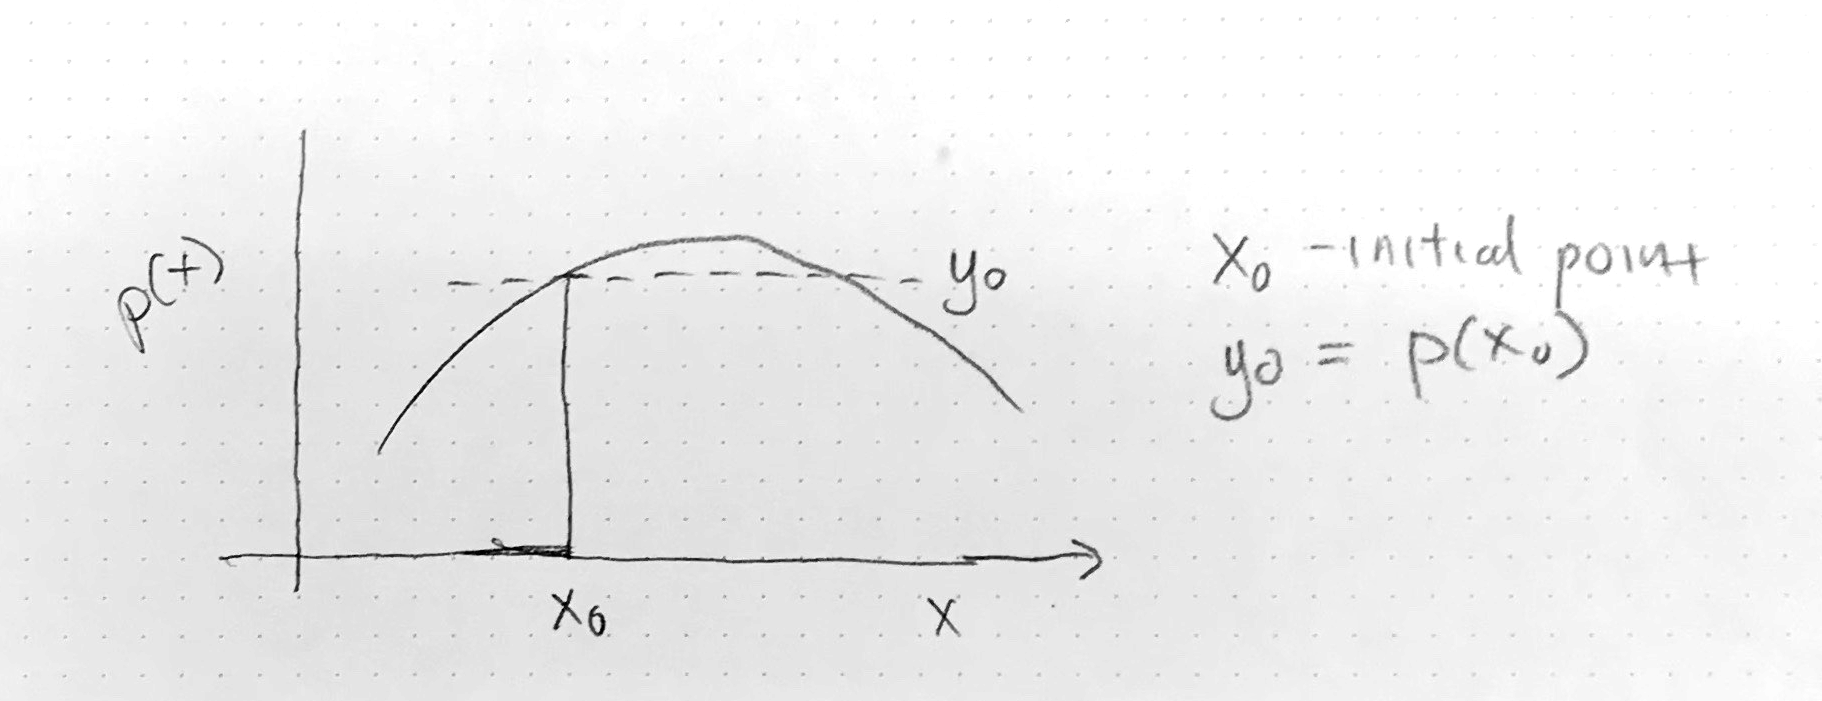 p(t)
y₀
x₀
x
x₀ - initial point
y₀ = p(x₀)